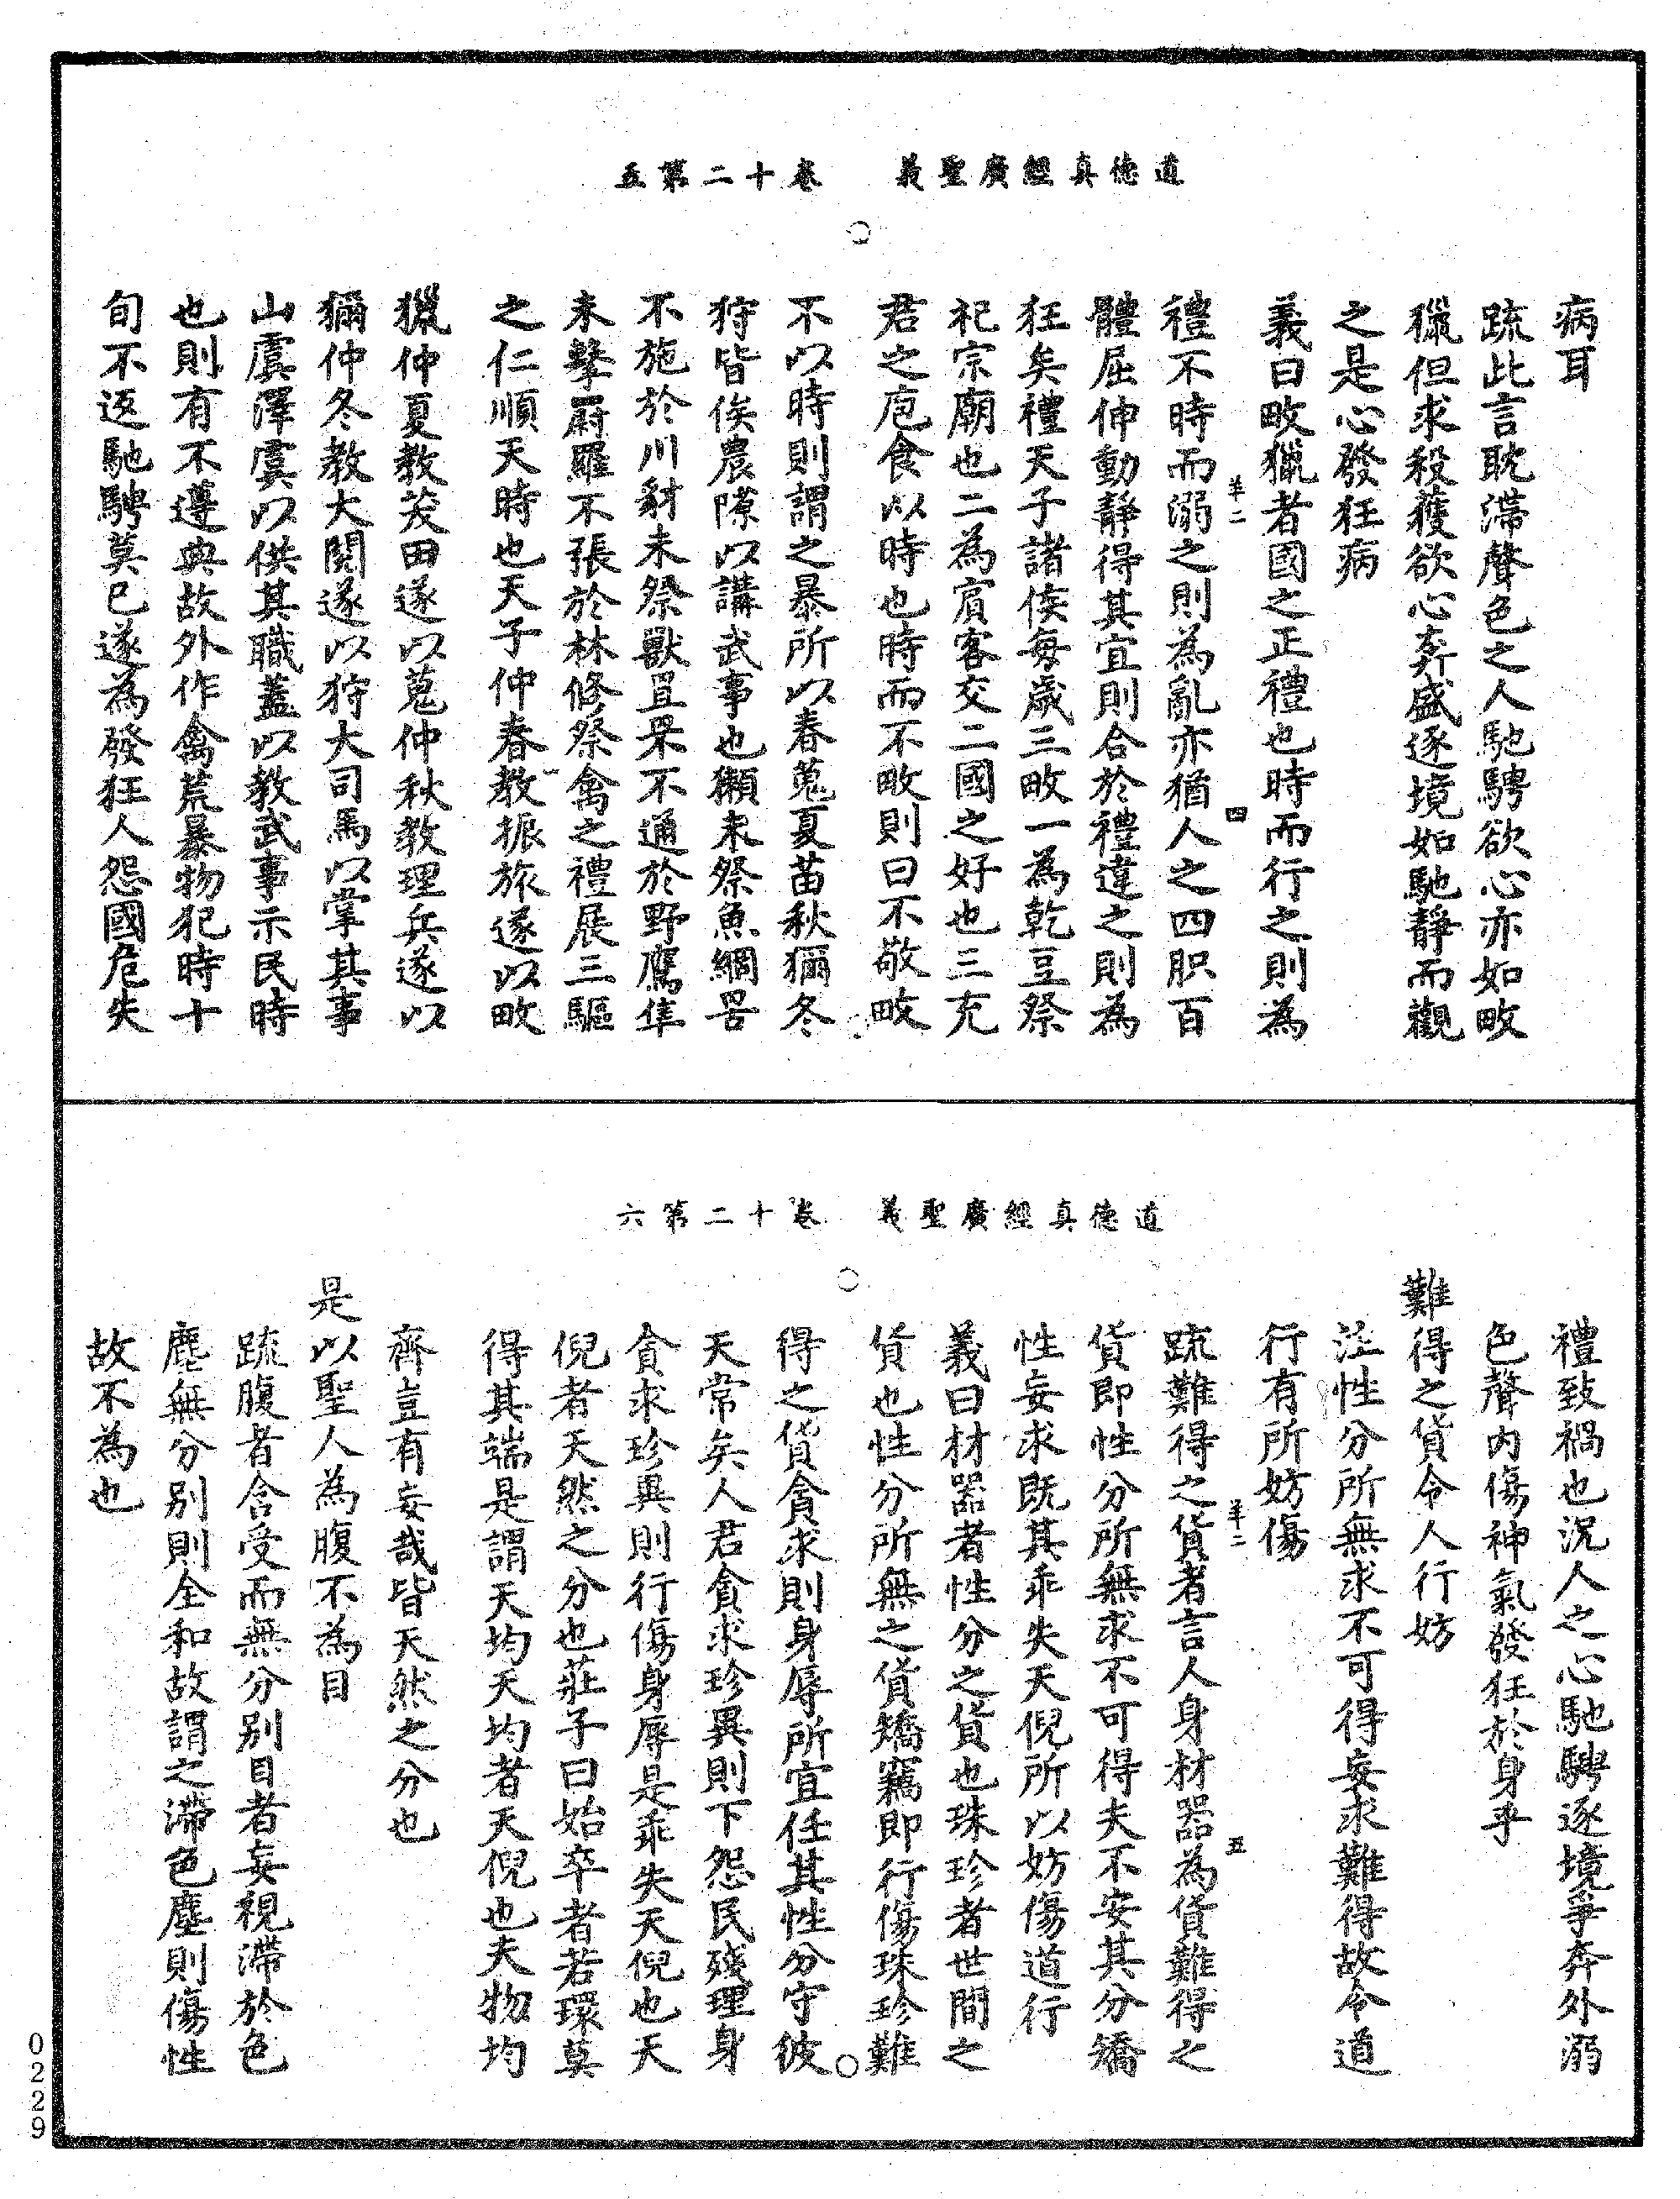 道德真經廣聖義　卷十二第五
病耳
疏此言耽滯聲色之人馳騁欲心亦如畋
獵但求殺獲欲心奔盛逐境如馳靜而觀
之是心發狂病
義曰畋獵者國之正禮也時而行之則為
禮不時而溺之則為亂亦猶人之四胑百
體屈伸動靜得其宜則合於禮違之則為
狂矣禮天子諸侯每歲三畋一為乾豆祭
祀宗廟也二為賓客交二國之好也三充
君之庖食以時也時而不畋則曰不敬畋
不以時則謂之暴所以春蒐夏苗秋獮冬
狩皆俟農隙以講武事也獺未祭魚網罟
不施於川豺未祭獸罝罘不通於野鷹隼
未擊罻羅不張於林修祭禽之禮展三驅
之仁順天時也天子仲春教振旅遂以畋
獵仲夏教茇田遂以蒐仲秋教理兵遂以
獮仲冬教大閱遂以狩大司馬以掌其事
山虞澤虞以供其職蓋以教武事示民時
也則有不遵典故外作禽荒暴物犯時十
旬不返馳騁莫已遂為發狂人怨國危失
羊二
四
道德真經廣聖義　卷十二第六
禮致禍也況人之心馳騁逐境爭奔外溺
色聲內傷神氣發狂於身乎
難得之貨令人行妨
注性分所無求不可得妄求難得故令道
行有所妨傷
疏難得之貨者言人身材器為貨難得之
貨即性分所無求不可得夫不安其分矯
性妄求既其乖失天倪所以妨傷道行
義曰材器者性分之貨也珠珍者世間之
貨也性分所無之貨矯竊即行傷珠珍難
得之貨貪求則身辱所宜任其性分守彼
天常矣人君貪求珍異則下怨民殘理身
貪求珍異則行傷身辱是乖失天倪也天
倪者天然之分也莊子曰始卒者若環莫
得其端是謂天均天均者天倪也夫物均
齊豈有妄哉皆天然之分也
是以聖人為腹不為目
疏腹者含受而無分別目者妄視滯於色
塵無分別則全和故謂之滯色塵則傷性
故不為也
羊二
五
0229